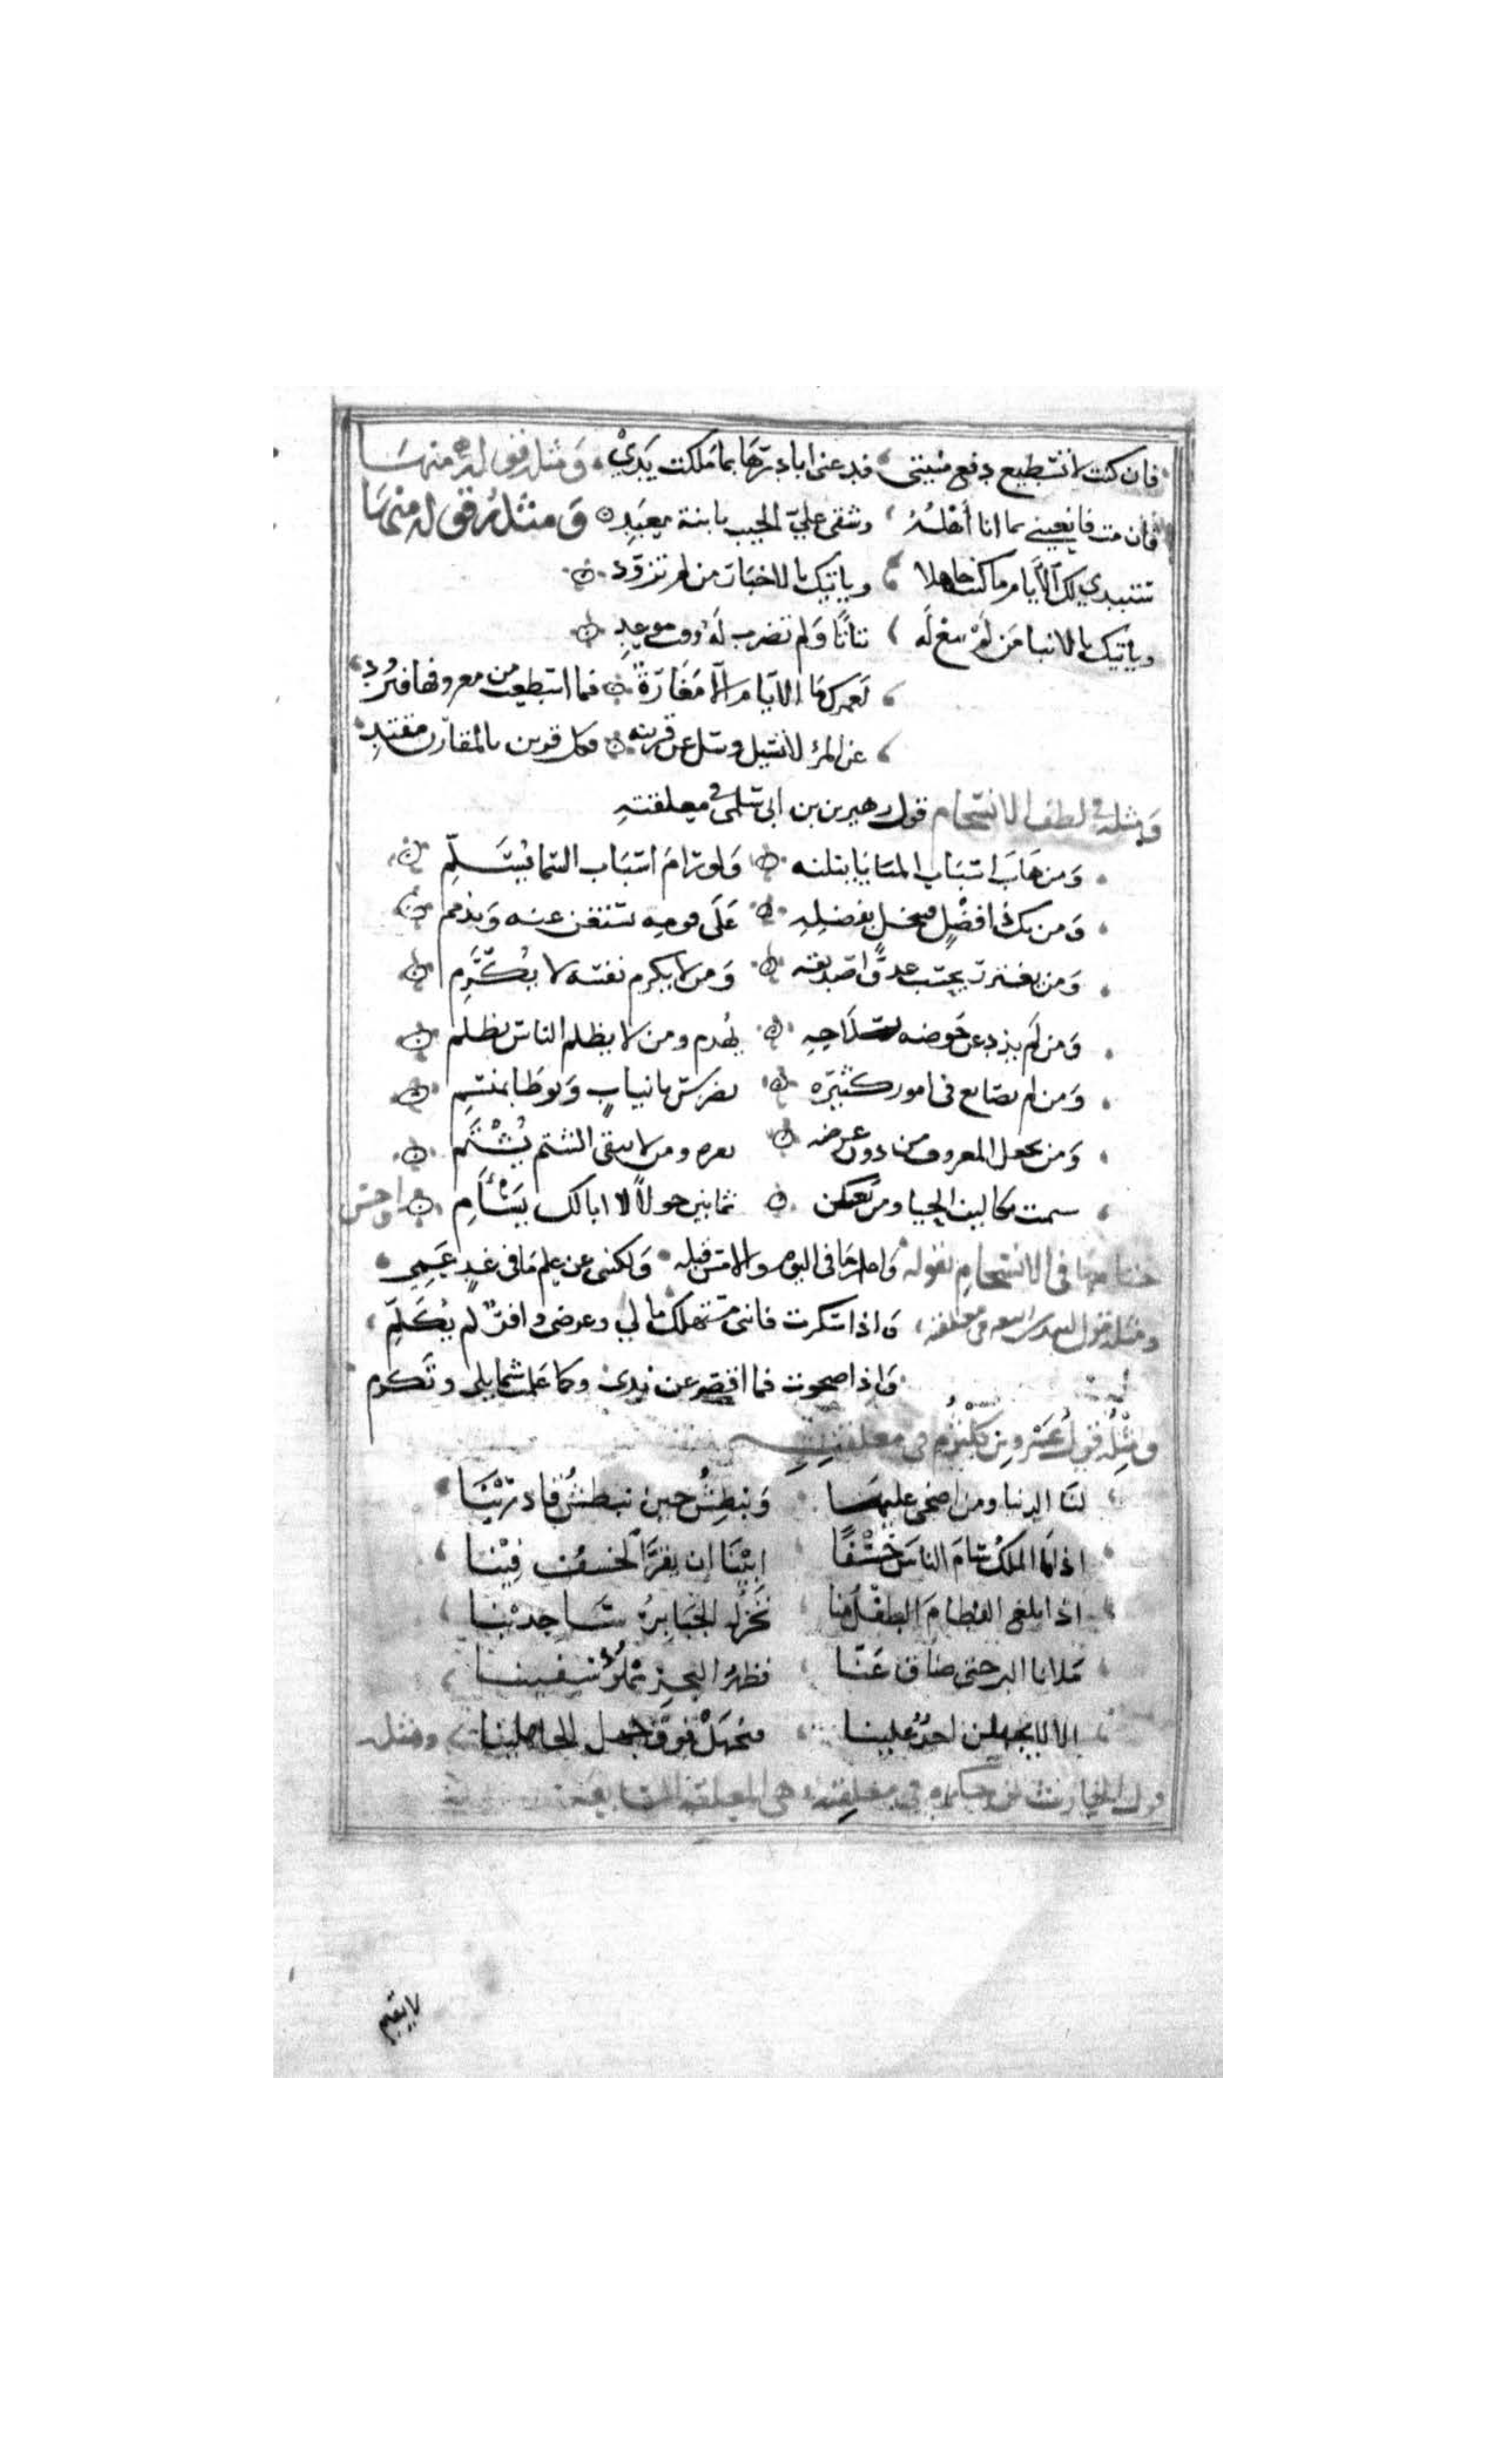 فان كنت لا تسطيع دفع منيتي فدعني ابادرها بما ملكت يدي ومثله قوله منها
فان مت فانعيني بما انا أهله وشقي علي الجيب يا ابنة معبد ومثله قوله منها
ستبدي لك الايام ما كنت جاهلا وياتيك بالاخبار من لم تزود
وياتيك بالانبا من لم تبع له بتاتا ولم تضرب له وقت موعد
لعمرك ما الايام الا معارة فما اسطعت من معروفها فتزود
عن المرء لا تسئل وسل عن قرينه فكل قرين بالمقارن مقتد
ومثله في لطف الانسجام قول زهير بن بن ابي سلمى في معلقته
ومن هاب اسباب المنايا ينلنه ولو رام اسباب السما بسلم
ومن يك ذا فضل فيبخل بفضله على قومه يستغن عنه ويذمم
ومن يغترب يحسب عدوا صديقه ومن لا يكرم نفسه لا يكرم
ومن لم يذد عن حوضه بسلاحه يهدم ومن لا يظلم الناس يظلم
ومن لم يصانع في امور كثيره يضرس بانياب ويوطا بمنسم
ومن يجعل المعروف من دون عرضه يفره ومن لا يتقى الشتم يشتم
سئمت تكاليف الحيا ومن يعش ثمانين حولا لا ابا لك يسأم واحسن
ختامها في الانسجام بقوله واعلم ما في اليوم والامس قبله ولكنني عن علم ما في غد عمي
ومثله قول لبيد بن ربيعه في معلقته واذا سكرت فانني مستهلك مالي وعرضي وافر لم يكلم
واذا صحوت فما اقصر عن ندى وكما علمت شمايلي وتكرم
ومثله قول عمرو بن كلثوم في معلقته
لنا الدنيا ومن اضحى عليها ونبطش حين نبطش قادرينا
اذا ما الملك سام الناس خسفا ابينا ان يقر الخسف فينا
اذا بلغ الفطام الطفل منا تخر له الجبابر ساجدينا
ملانا البر حتى ضاق عنا وظهر البحر نملؤه سفينا
الا لا يجهلن احد علينا فنجهل فوق جهل الجاهلينا ومثله
قول الحارث في معلقته وهي المعلقة السابعة
لا يقيم